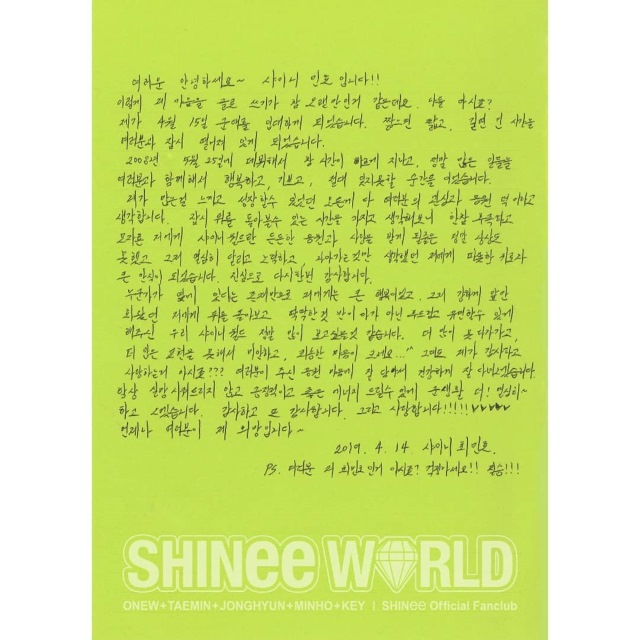 여러분 안녕하세요~ 샤이니 민호입니다!!
이렇게 제 마음을 글로 쓰기가 참 오랜만인거 같은데요. 다들 아시죠?
제가 4월 15일 군대를 입대하게 되었습니다. 짧으면 짧고, 길면 긴 시간을
여러분과 잠시 떨어져 있게 되었습니다.
2008년 5월 25일에 데뷔해서 참 시간이 빠르게 지나고, 정말 많은 일들을
여러분과 함께해서 행복하고, 기쁘고, 절대 잊지못할 순간을 여겼습니다.
제가 많은걸 느끼고 성장할수 있었던 모든게 다 여러분의 관심과 응원 덕이라고
생각합니다. 잠시 뒤를 돌아볼수 있는 시간을 가지고 생각해보니 한참 부족하고
모자른 저에게 샤이니월드란 든든한 응원과 사랑을 받게 될줄은 정말 상상도
못했고 그저 열심히 달리고 노력하고, 나아가는것만 생각했던 저에게 따뜻한 위로와
큰 안식이 되었습니다. 진심으로 다시한번 감사합니다.
누군가가 옆에 있다는 존재만으로 저에게는 큰 행복이었고, 그저 강하게 앞만
봐왔던 저에게 뒤를 돌아보고 딱딱한것 만이 아닌 부드럽고 유연할수 있게
해주신 우리 샤이니월드 정말 많이 보고싶을것 같습니다. 더 많이 못 다가가고,
더 많은 표현을 못해서 미안하고, 죄송한 마음이 크네요..." 그래도 제가 감사하고
사랑하는거 아시죠??? 여러분이 주신 응원 마음에 잘 담아서 건강하게 잘 다녀오겠습니다.
항상 실망시켜드리지 않고 긍정적이고 좋은 에너지 드릴수 있게 군생활 더! 열심히~
하고 오겠습니다. 감사하고 또 감사합니다. 그리고 사랑합니다!!!!!♥♥♥♥♥
언제나 여러분이 제 희망입니다~
2019. 4. 14. 샤이니 최민호.
PS. 여러분 저 최민호인거 아시죠? 걱정마세요!! 필승!!!
SHINee WORLD
ONEW+TAEMIN+JONGHYUN+MINHO+KEY | SHINee Official Fanclub